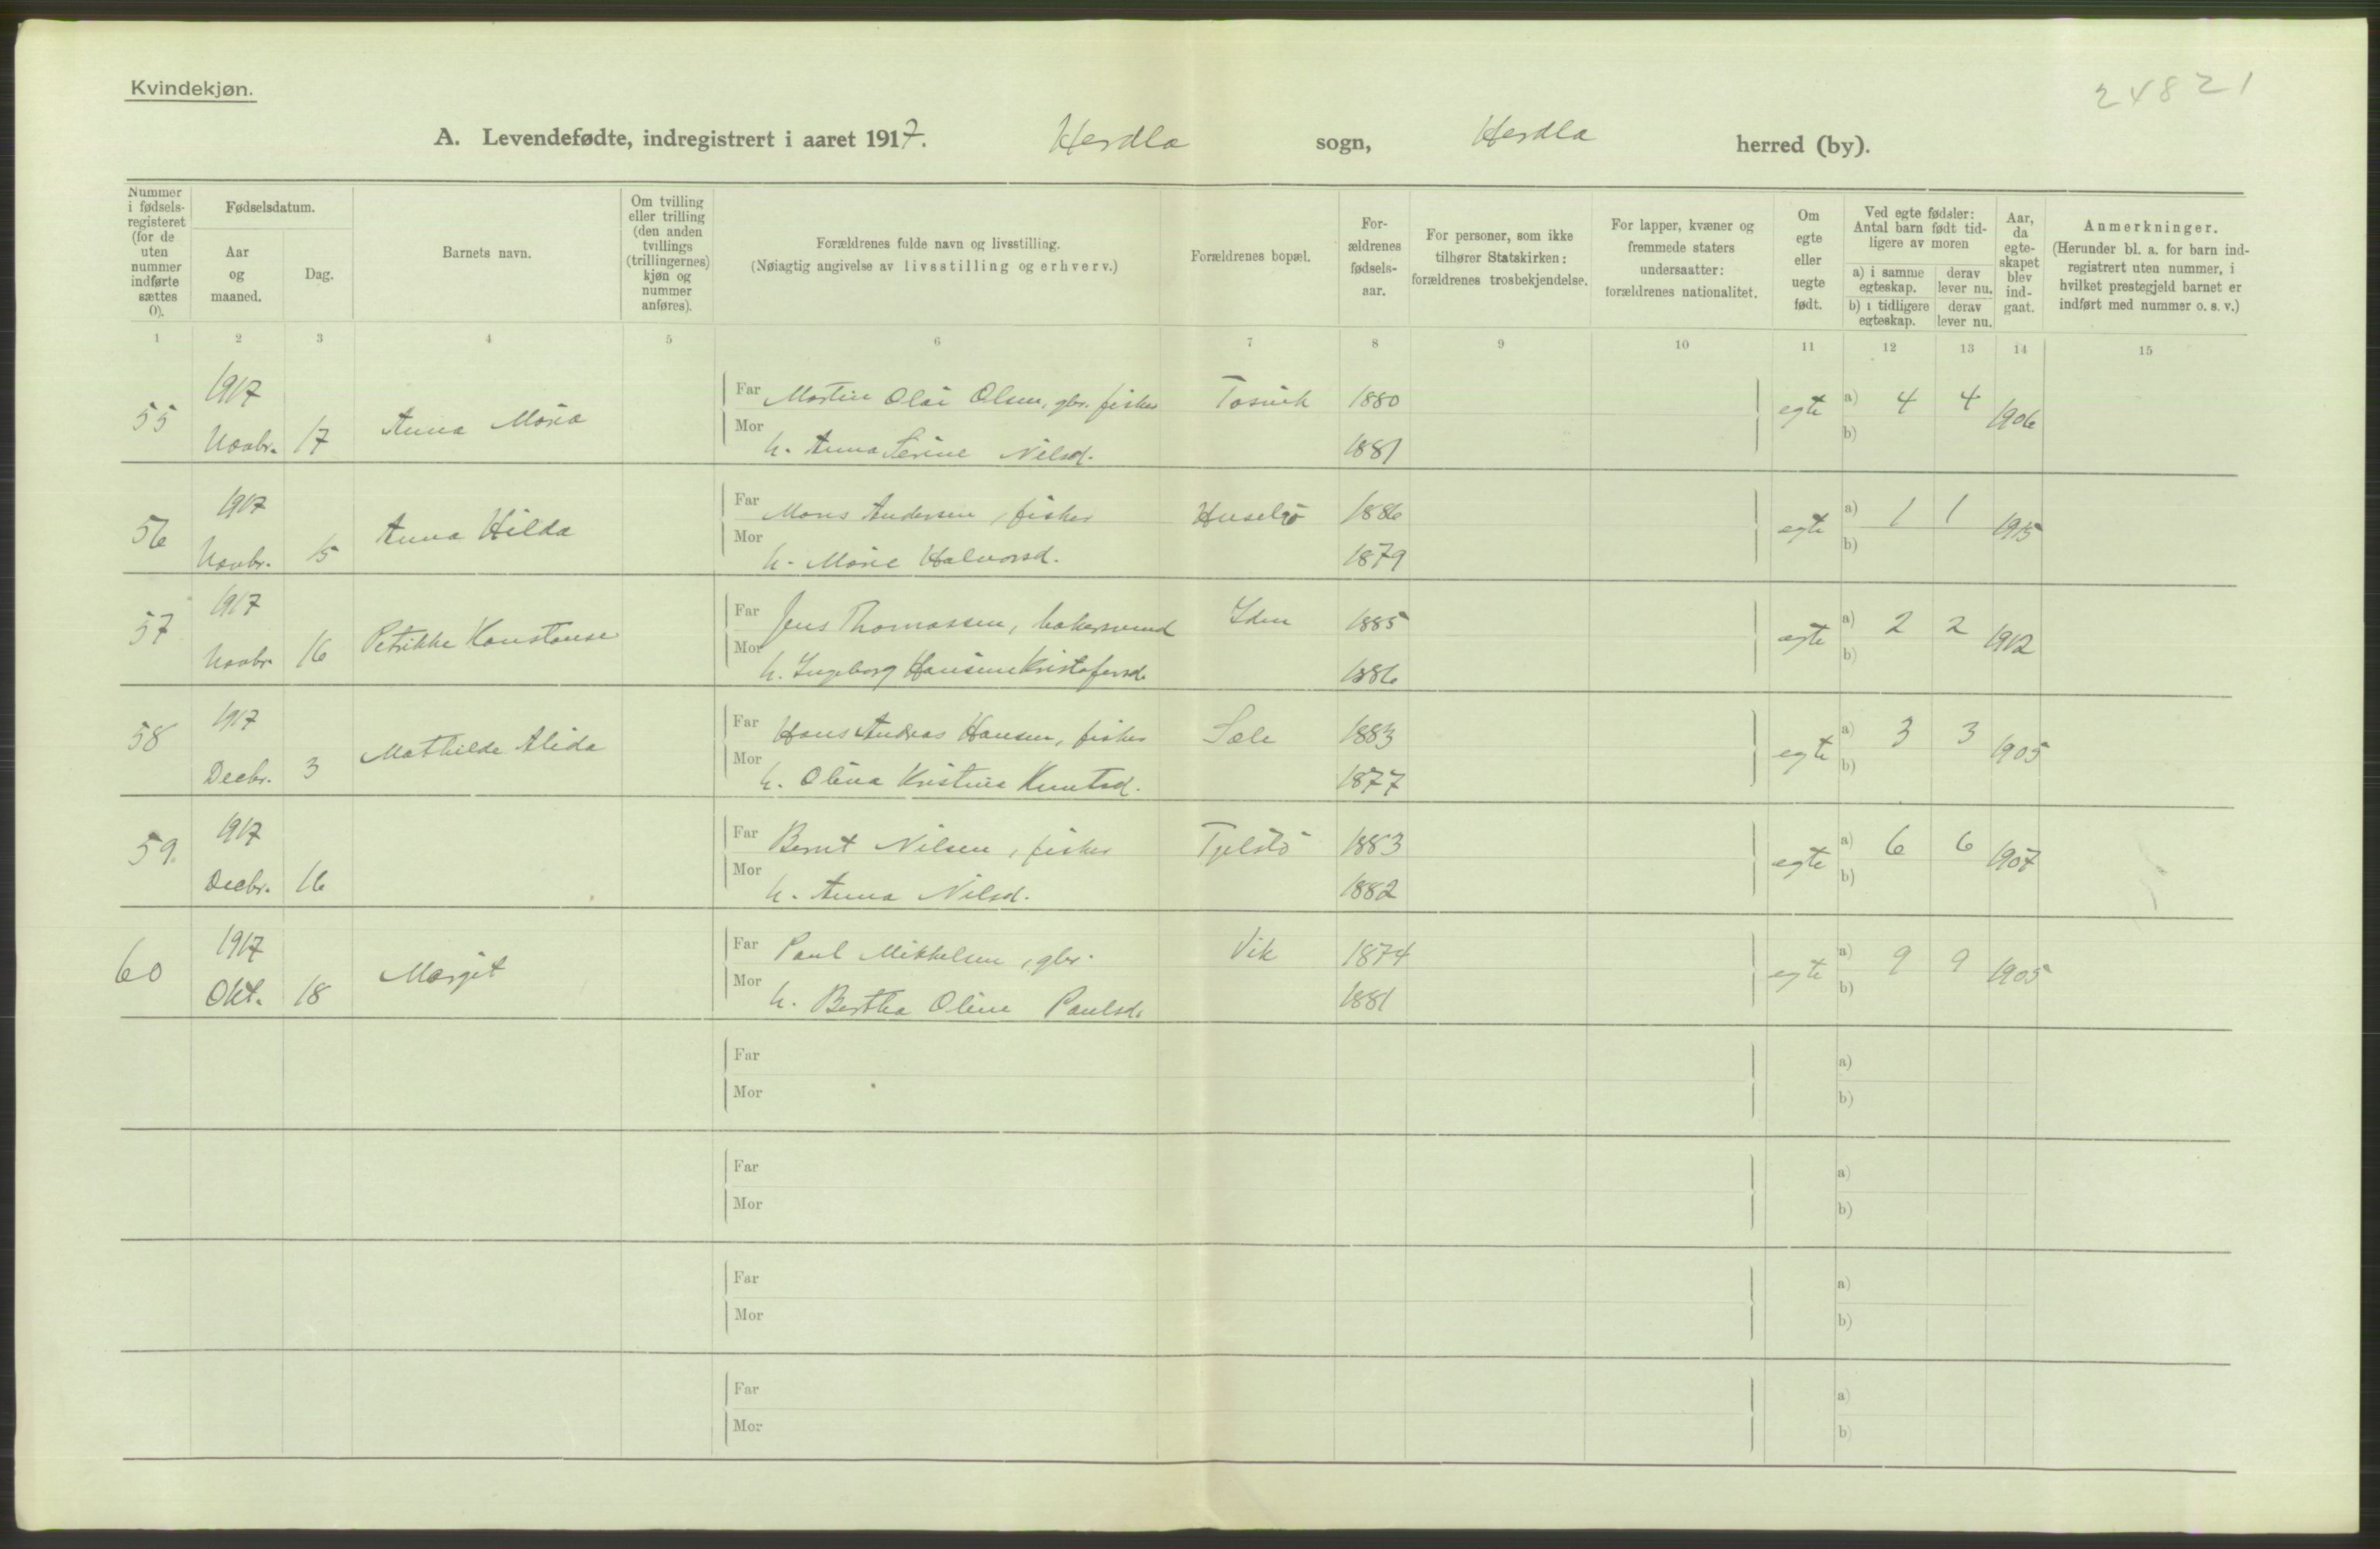 Kvindekjøn.
24821
A. Levendefødte, indregistrert i aaret 1917. Herdla sogn, Herdla herred (by).
Nummer i fødsels-registeret (for de uten nummer indførte sættes 0).
Fødselsdatum.
Aar og maaned.
Dag.
Barnets navn.
Om tvilling eller trilling (den anden tvillings (trillingernes) kjøn og nummer anføres).
Forældrenes fulde navn og livsstilling.
(Nøiagtig angivelse av livsstilling og erhverv.)
Forældrenes bopæl.
For-ældrenes fødsels-aar.
For personer, som ikke tilhører Statskirken: forældrenes trosbekjendelse.
For lapper, kvæner og fremmede staters undersaatter: forældrenes nationalitet.
Om egte eller uegte født.
Ved egte fødsler: Antal barn født tid-ligere av moren
a) i samme egteskap.
derav lever nu.
b) i tidligere egteskap.
derav lever nu.
Aar, da egte-skapet blev ind-gaat.
Anmerkninger.
(Herunder bl. a. for barn ind-registrert uten nummer, i hvilket prestegjeld barnet er indført med nummer o. s. v.)
1 2 3 4 5 6 7 8 9 10 11 12 13 14 15
55 1917 Novbr. 17 Anna Maria
Far Martin Olai Olsen, gbr. fisker Tosvik 1880 egte a) 4 4 1906
Mor h. Anna Serine Nilsd. 1881 b)
56 1917 Novbr. 15 Anna Hilda
Far Mons Andersen, fisker Husebø 1886 egte a) 1 1 1915
Mor h. Marie Halvorsd. 1879 b)
57 1917 Novbr. 16 Petrikke Konstanse
Far Jens Thomassen, bakersvend Iden 1885 egte a) 2 2 1912
Mor h. Ingeborg Hansine Kristofersd. 1886 b)
58 1917 Decbr. 3 Mathilde Alida
Far Hans Andreas Hansen, fisker Sæle 1883 egte a) 3 3 1905
Mor h. Olina Kristina Knutsd. 1877 b)
59. 1917 Decbr. 16
Far Bernt Nilsen, fisker Tjeldstø 1883 egte a) 6 6 1907
Mor h. Anna Nilsd. 1882 b)
60 1917 Okt. 18 Margit
Far Paul Mikkelsen, gbr. Vik 1874 egte a) 9 9 1905
Mor h. Bertha Oline Paulsd. 1881 b)
Far a)
Mor b)
Far a)
Mor b)
Far a)
Mor b)
Far a)
Mor b)